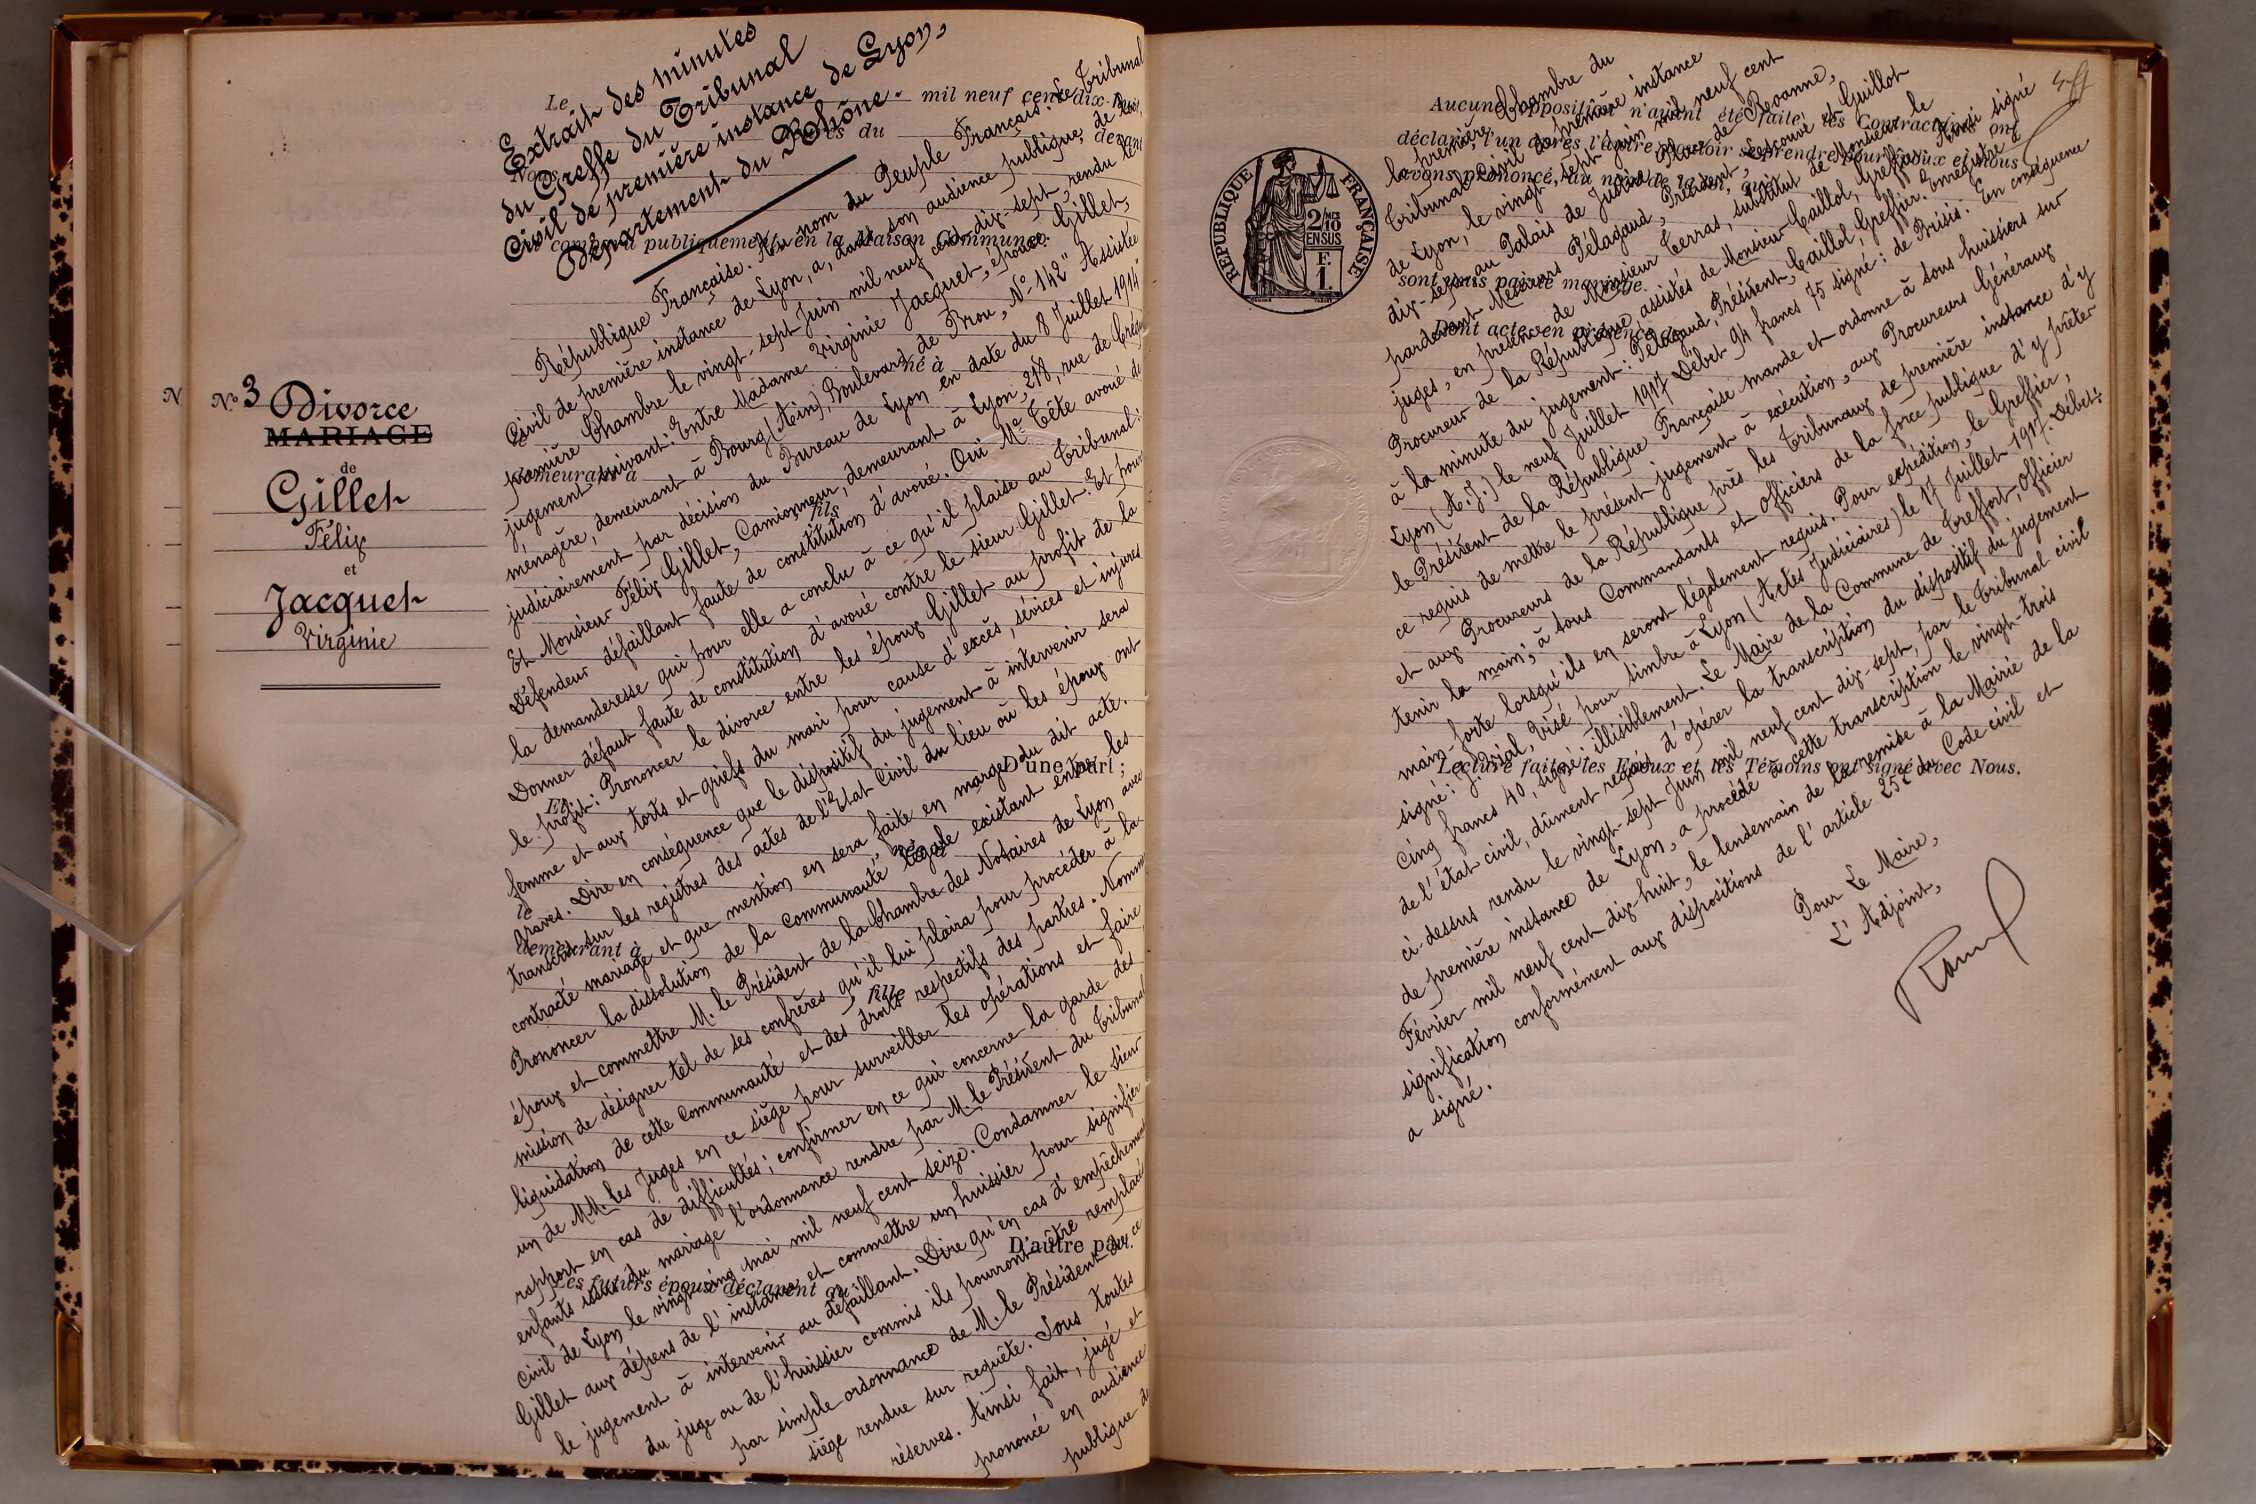 N
N° 3
Divorce
MARIAGE
de
Gillet
Félix
et
Jacquet
Virginie
Extrait des minutes
du Greffe du Tribunal
Civil de première instance de Lyon,
Département du Rhône.
Le mil neuf cent dix-
Nous
du devant
comparu publiquement en la Maison Commune:
né à
demeurant à
fils
D'une part;
Et
le née à
demeurant à
fille
D'autre part.
Les futurs époux déclarent qu
République Française. Au nom du Peuple Français. Le Tribunal
Civil de première instance de Lyon, a, dans son audience publique, de la
première Chambre le vingt-sept Juin mil neuf cent dix-sept, rendu le
jugement suivant: Entre Madame Virginie Jacquet, épouse Gillet,
ménagère, demeurant à Bourg (Ain), Boulevard de Brou, N° 142" Assistée
judiciairement par décision du Bureau de Lyon en date du 8 Juillet 1914
Et Monsieur Félix Gillet, Camionneur, demeurant à Lyon, 218, rue de Créqui
Défendeur défaillant faute de constitution d'avoué. Oui Me Tête avoué de
la demanderesse qui pour elle a conclu à ce qu'il plaise au Tribunal:
Donner défaut faute de constitution d'avoué contre le sieur Gillet. Et pour
le profit: Prononcer le divorce entre les époux Gillet au profit de la
femme et aux torts et griefs du mari pour cause d'excès, sévices et injures
graves. Dire en conséquence que le dispositif du jugement à intervenir sera
transcrit sur les registres des actes de l'Etat Civil du lieu où les époux ont
contracté mariage et que mention en sera faite en marge du dit acte.
Prononcer la dissolution de la communauté légale existant entre les
époux et commettre M. le Président de la Chambre des Notaires de Lyon avec
mission de désigner tel de ses confrères qu'il lui plaira pour procéder à la
liquidation de cette communauté et des droits respectifs des parties. Nommer
un de MM. les Juges en ce siège pour surveiller les opérations et faire
rapport en cas de difficultés; confirmer en ce qui concerne la garde des
enfants issus du mariage l'ordonnance rendue par M. le Président du Tribunal
Civil de Lyon le vingt-cinq mai mil neuf cent seize. Condamner le sieur
Gillet aux dépens de l'instance et commettre un huissier pour signifier
le jugement à intervenir au défaillant. Dire qu'en cas d'empêchement
du juge ou de l'huissier commis ils pourront être remplacés
par simple ordonnance de M. le Président de ce
siège rendue sur requête. Sous toutes
réserves. Ainsi fait, jugé et
prononcé en audience
publique de
REPUBLIQUE FRANÇAISE
2/10 EN SUS
F. 1.
Aucune opposition n'ayant été faite, les Contractants ont
déclaré l'un après l'autre vouloir se prendre pour époux et nous
avons prononcé, au nom de la loi, que
sont unis par le mariage.
Dont acte, en présence de
Lecture faite, les Epoux et les Témoins ont signé avec Nous.
la première Chambre du
Tribunal Civil de première instance
de Lyon, le vingt-sept Juin mil neuf cent
dix-sept, au Palais de Justice, Place de Roanne,
pardevant Messieurs Pélagaud, Président, et Guillot
juges, en présence de Monsieur Terras, substitut de Monsieur le
Procureur de la République assistés de Monsieur Caillot, Greffier. Ainsi signé
à la minute du jugement: Pélagaud, Président, Caillot, Greffier. Enregistré à
Lyon (A. J.) le neuf Juillet 1917 Débet 94 francs 75 signé: de Brisis. En conséquence
le Président de la République Française mande et ordonne à tous huissiers sur
ce requis de mettre le présent jugement à exécution, aux Procureurs Généraux
et aux Procureurs de la République près les Tribunaux de première instance d'y
tenir la main; à tous Commandants et Officiers de la force publique d'y prêter
main-forte lorsqu'ils en seront légalement requis. Pour expédition, le Greffier,
signé: J. Drial, Visé pour timbre à Lyon (Actes Judiciaires) le 17 Juillet 1917. Débet:
Cinq francs 40, signé: illisiblement. Le Maire de la Commune de Treffort, Officier
de l'état civil, dûment requis d'opérer la transcription du dispositif du jugement
ci-dessus rendu le vingt-sept Juin mil neuf cent dix-sept, par le Tribunal civil
de première instance de Lyon, a procédé à cette transcription le vingt-trois
Février mil neuf cent dix-huit, le lendemain de la remise à la Mairie de la
signification conformément aux dispositions de l'article 252 du Code civil et
a signé.
Pour Le Maire,
L'Adjoint,